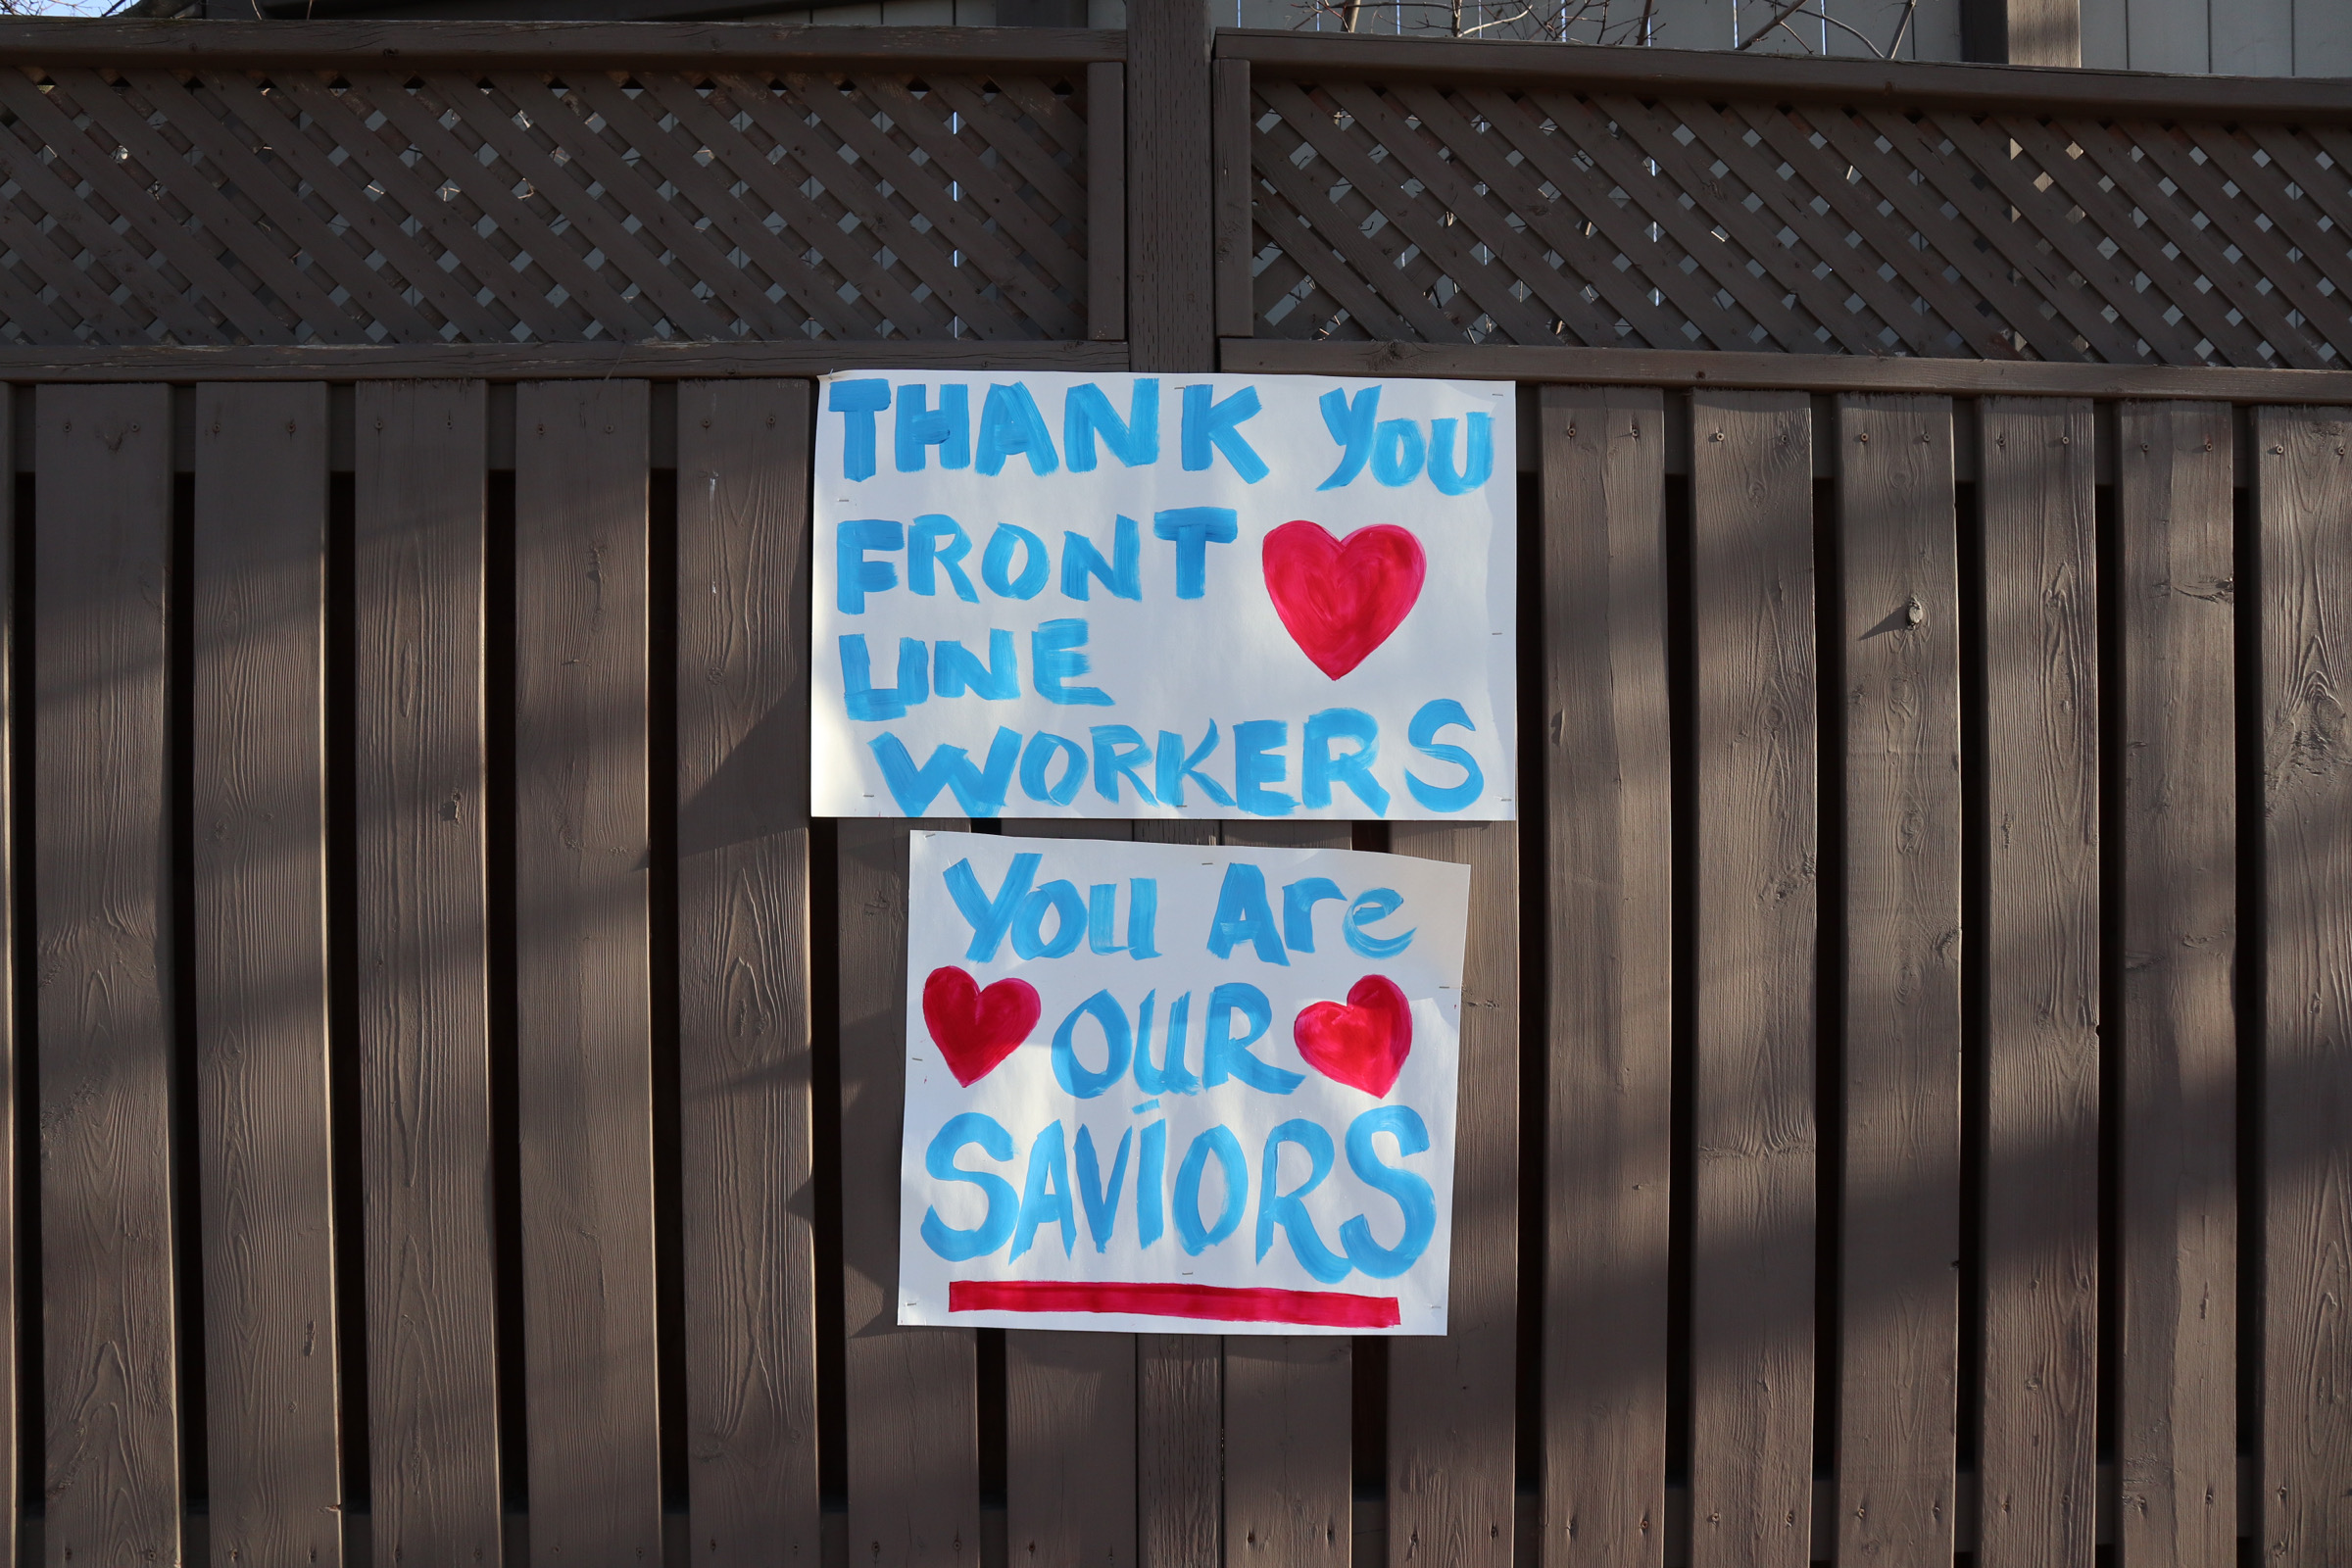 THANK YOU
FRONT
LINE
WORKERS
You Are
OUR
SAVIORS